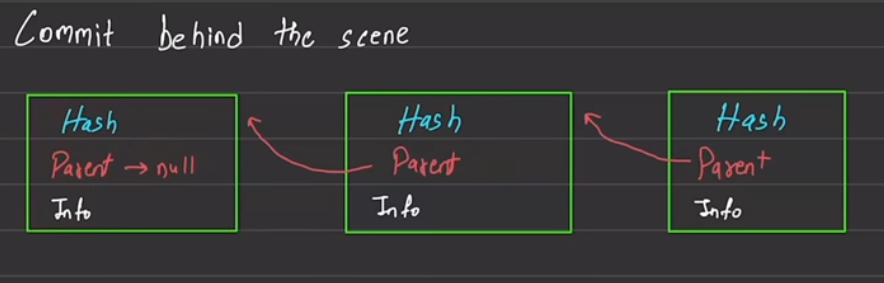 Commit behind the scene
Hash
Parent → null
Info
Hash
Parent
Info
Hash
Parent
Info